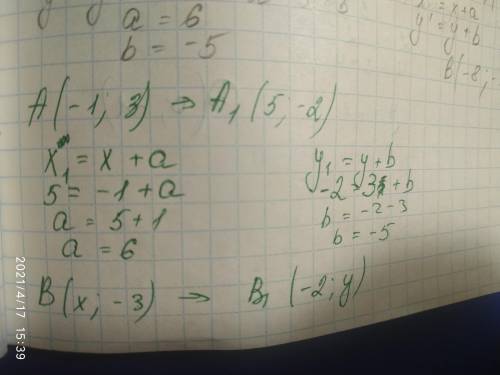 a = 6
b = -5
x' = x+a
y' = y+b
B(-8;
A(-1; 3) → A₁ (5; -2)
x₁ = x + a
5 = -1 + a
a = 5+1
a = 6
y₁ = y+b
-2 = 3 + b
b = -2-3
b = -5
B(x; -3) → B₁ (-2; y)
2021/4/17 15:39